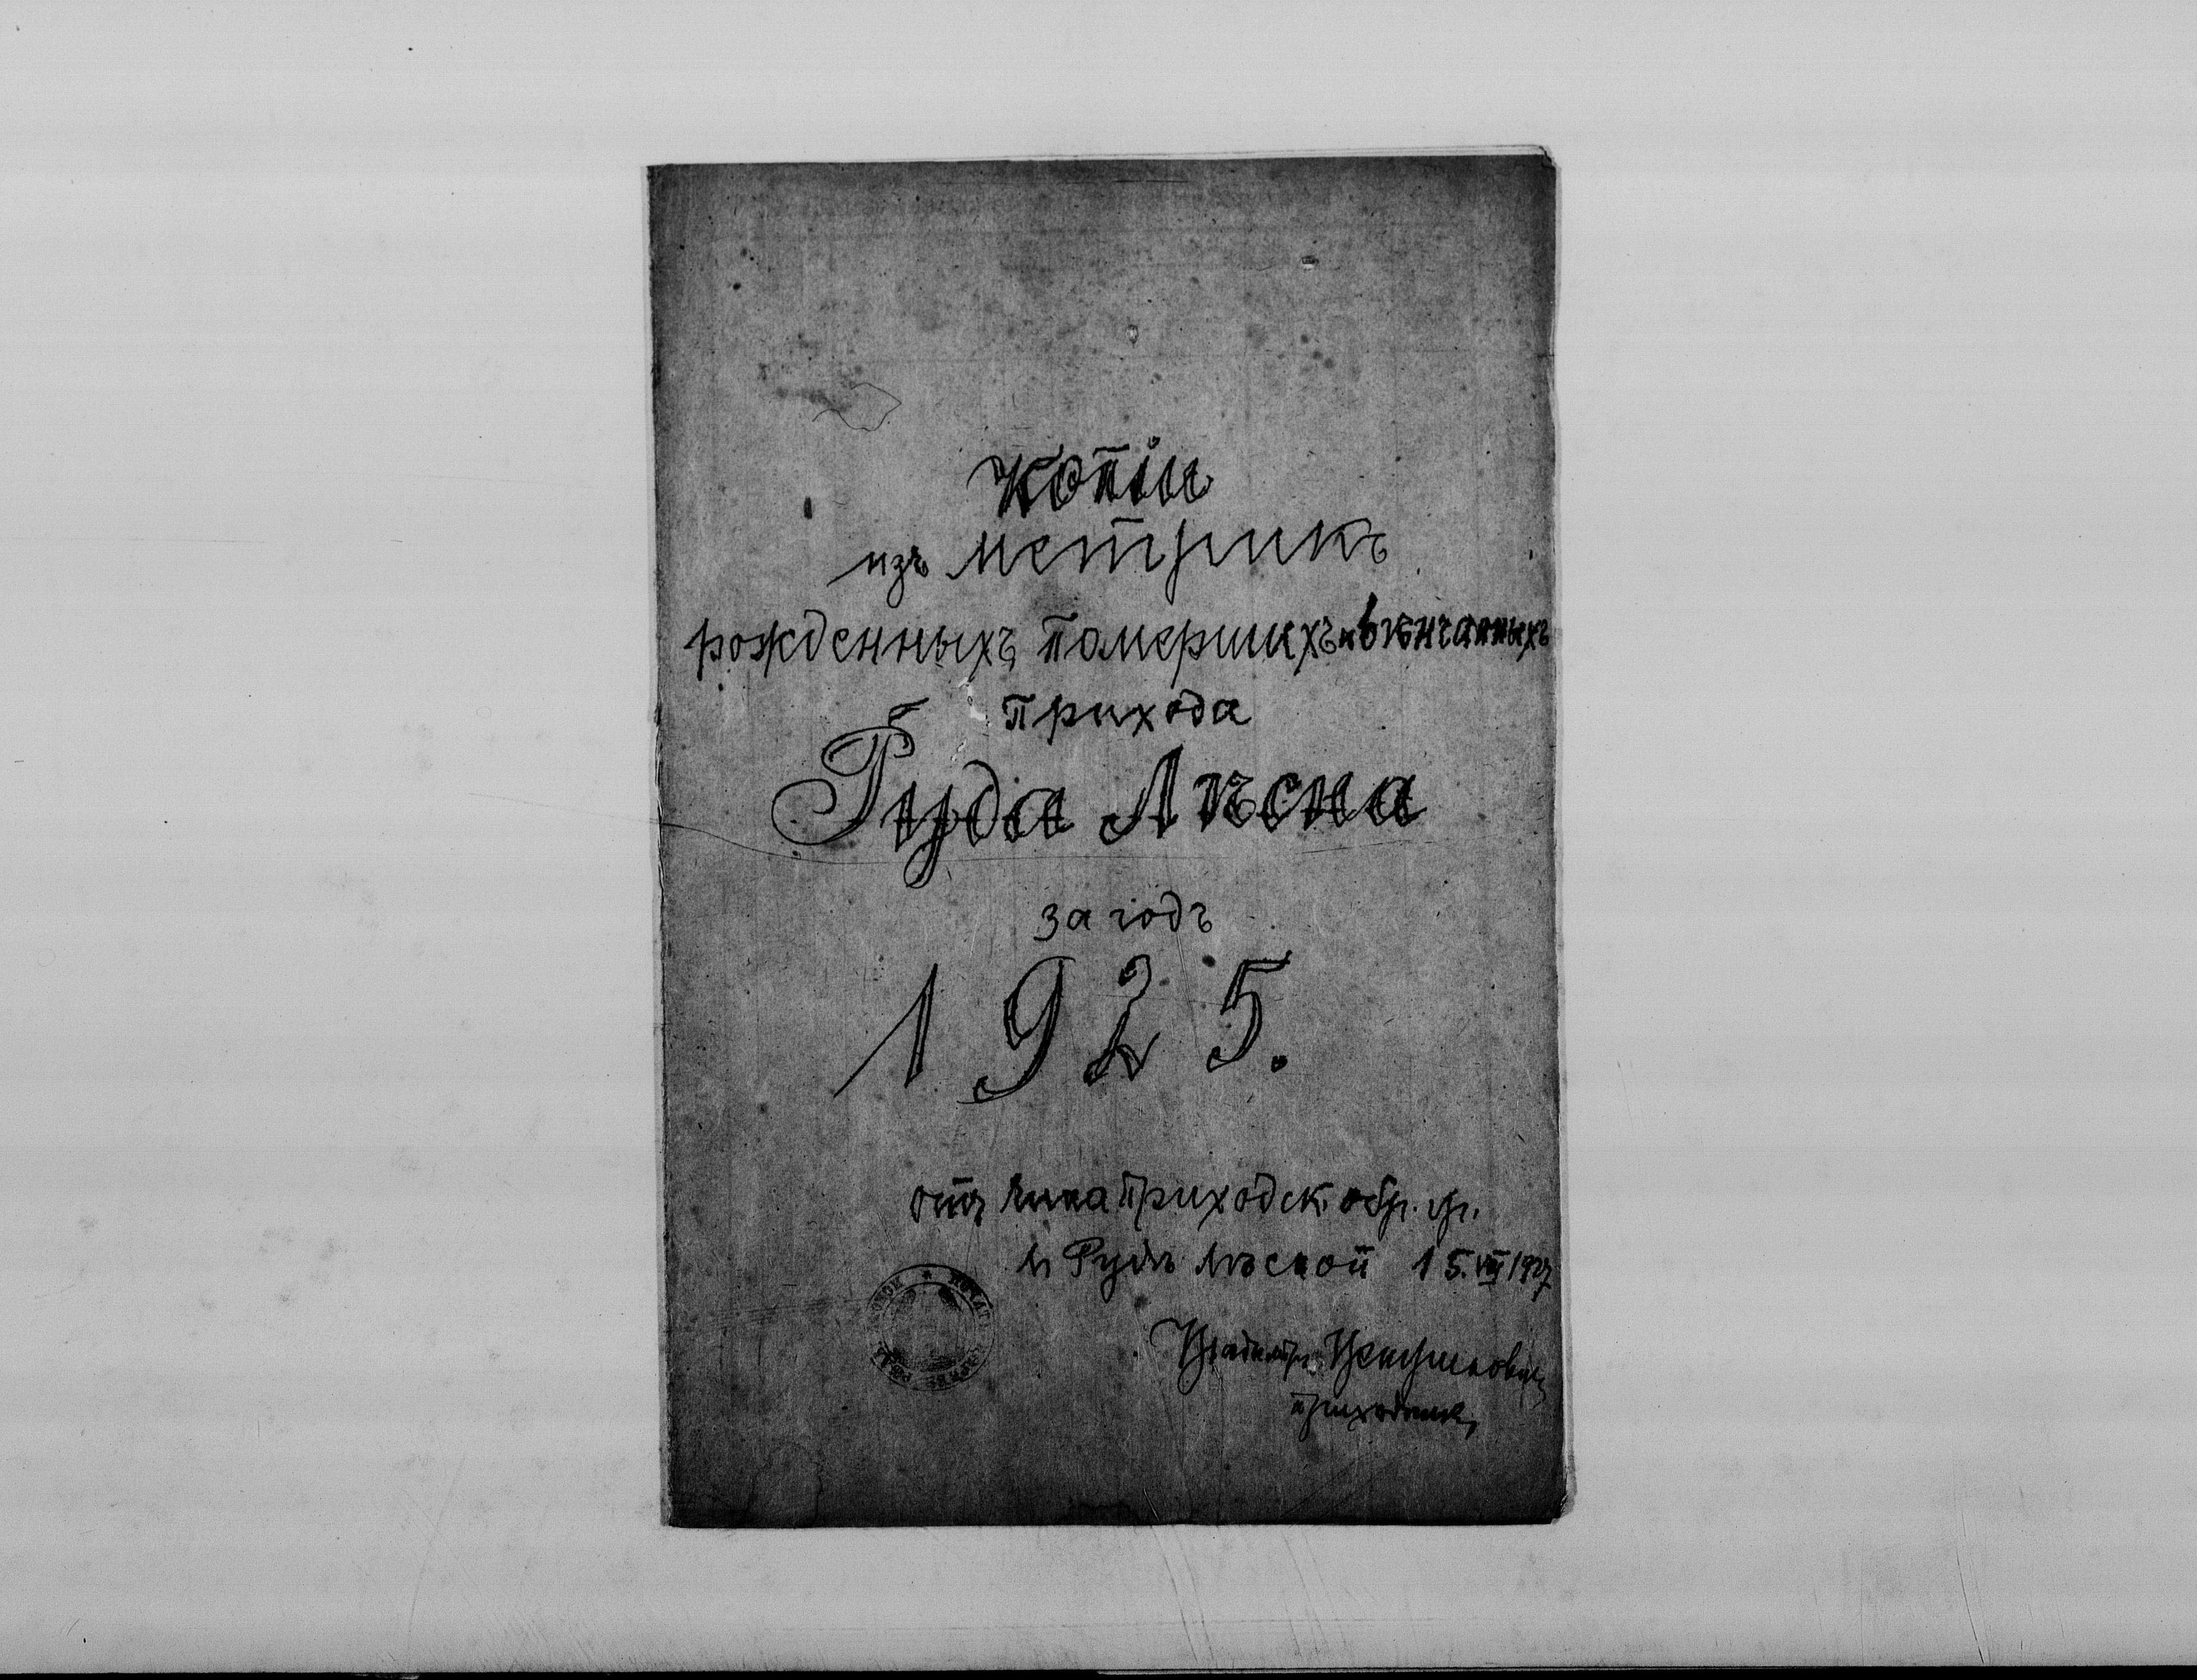 Копіи
изъ метрикъ
рожденныхъ, помершихъ и вѣнчанныхъ
прихода
Руда Лѣсна
за годъ
1925.
отъ приходск. обр.
въ Рудѣ лѣсной 15.VIII 1927
приходникъ